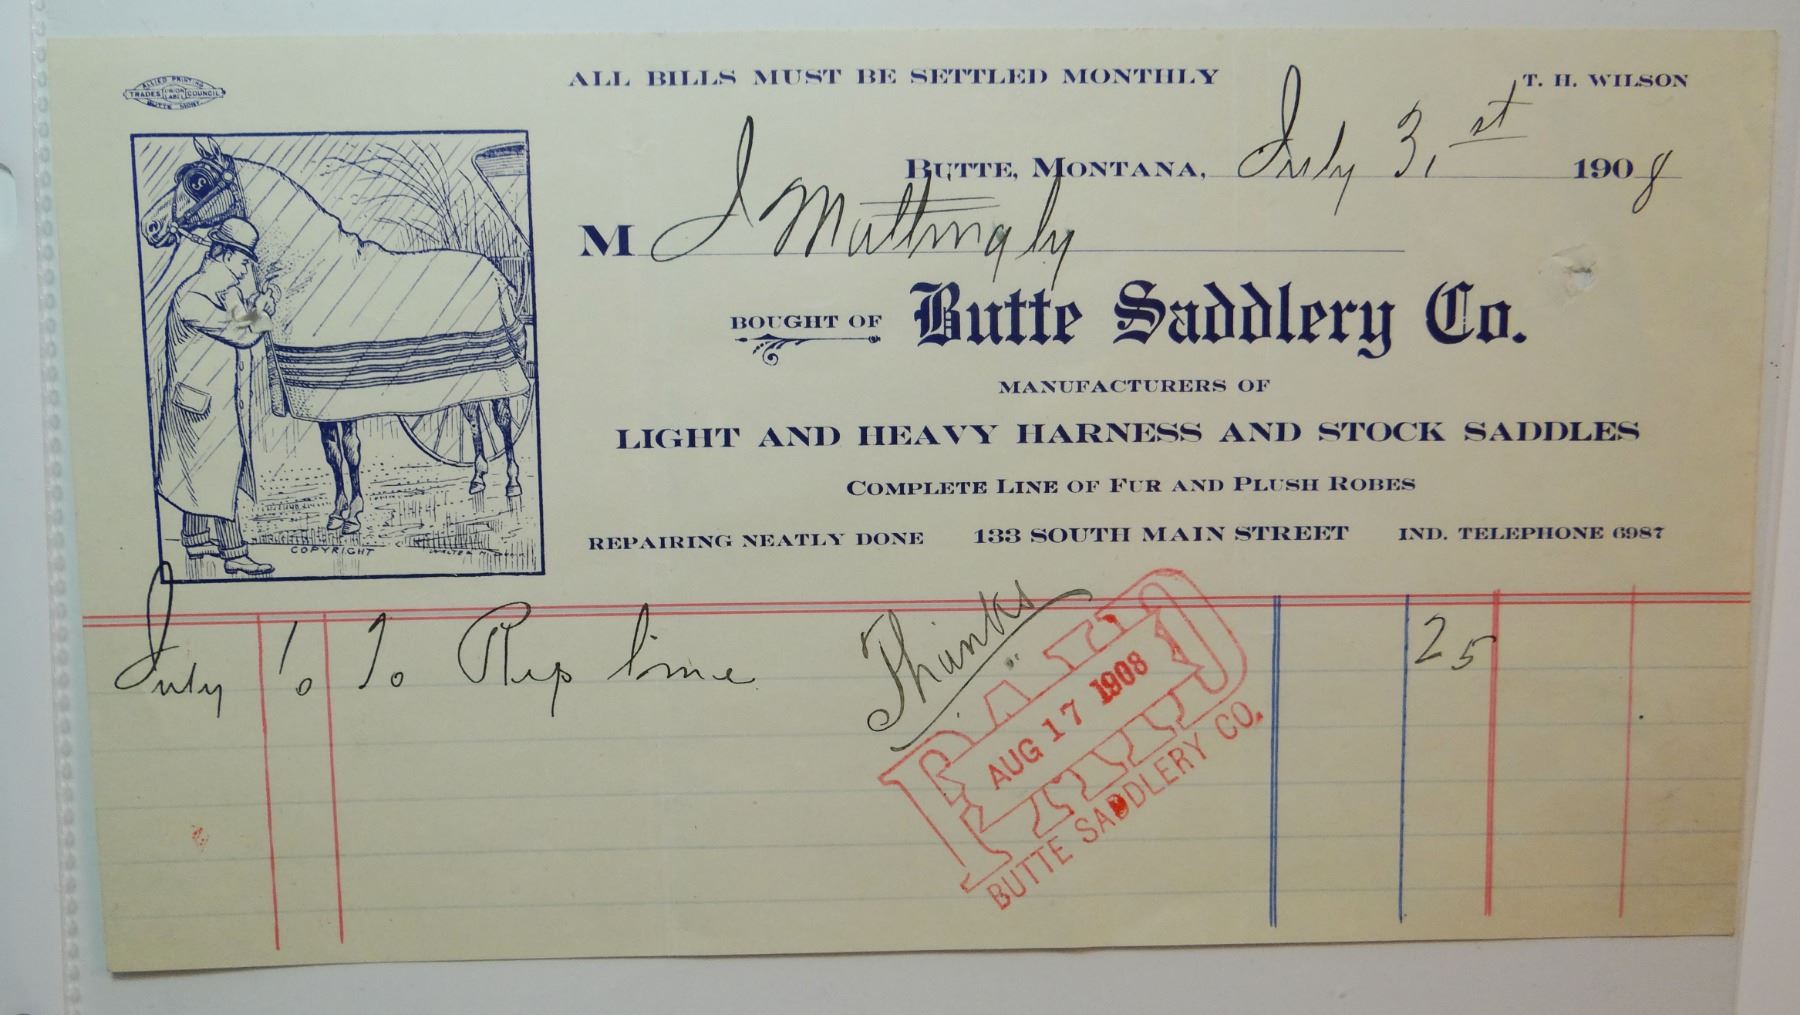 ALLIED PRINTING
TRADES UNION LABEL COUNCIL
BUTTE MONT.
ALL BILLS MUST BE SETTLED MONTHLY
T. H. WILSON
BUTTE, MONTANA, July 31st 1908
M J Mattingly
BOUGHT OF Butte Saddlery Co.
MANUFACTURERS OF
LIGHT AND HEAVY HARNESS AND STOCK SADDLES
COMPLETE LINE OF FUR AND PLUSH ROBES
REPAIRING NEATLY DONE 133 SOUTH MAIN STREET IND. TELEPHONE 6987
S
COPYRIGHT
July 10 To Rep line 25
Thanks
PAID
AUG 17 1908
BUTTE SADDLERY CO.